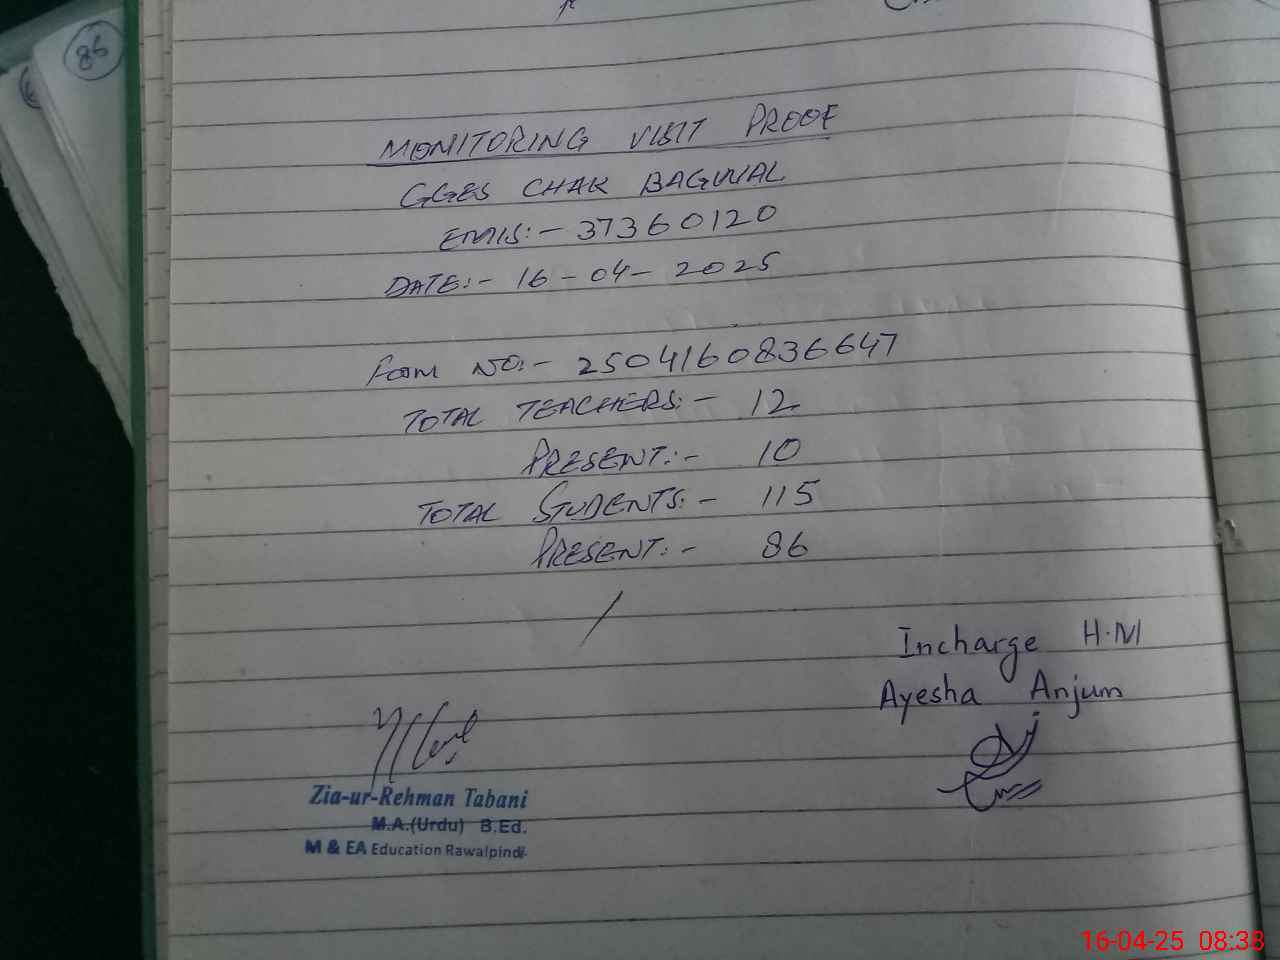 86
MONITORING VISIT PROOF
GGES CHAK BAGWAL
EMIS:- 37360120
DATE:- 16-04-2025
Form NO:- 2504160836647
TOTAL TEACHERS:- 12
PRESENT:- 10
TOTAL STUDENTS:- 115
PRESENT:- 86
Incharge H.M
Ayesha Anjum
Zia-ur-Rehman Tabani
M.A.(Urdu) B.Ed.
M & EA Education Rawalpindi
16-04-25 08:38